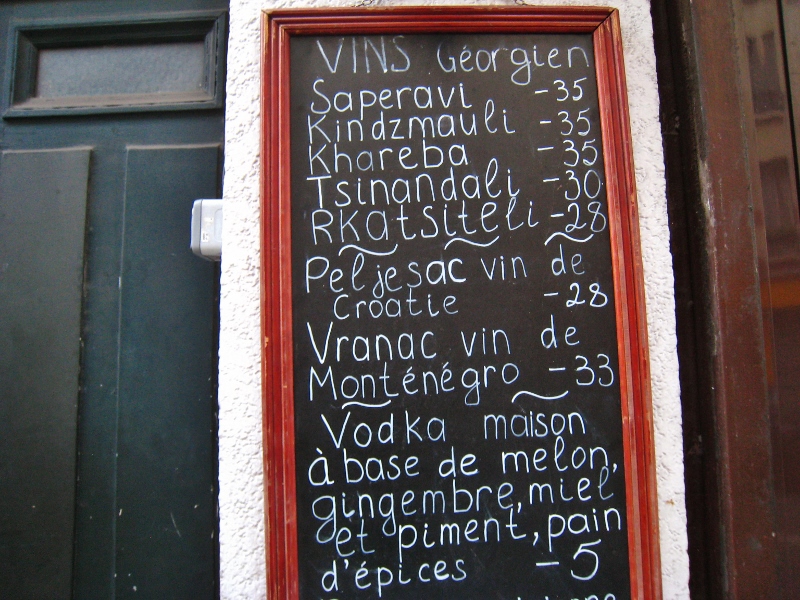 VINS Géorgien
Saperavi -35
Kindzmauli -35
Khareba -35
Tsinandali -30
RKatsiteli -28
Peljesac vin de
Croatie -28
Vranac vin de
Monténégro -33
Vodka maison
à base de melon,
gingembre, miel
et piment, pain
d'épices -5